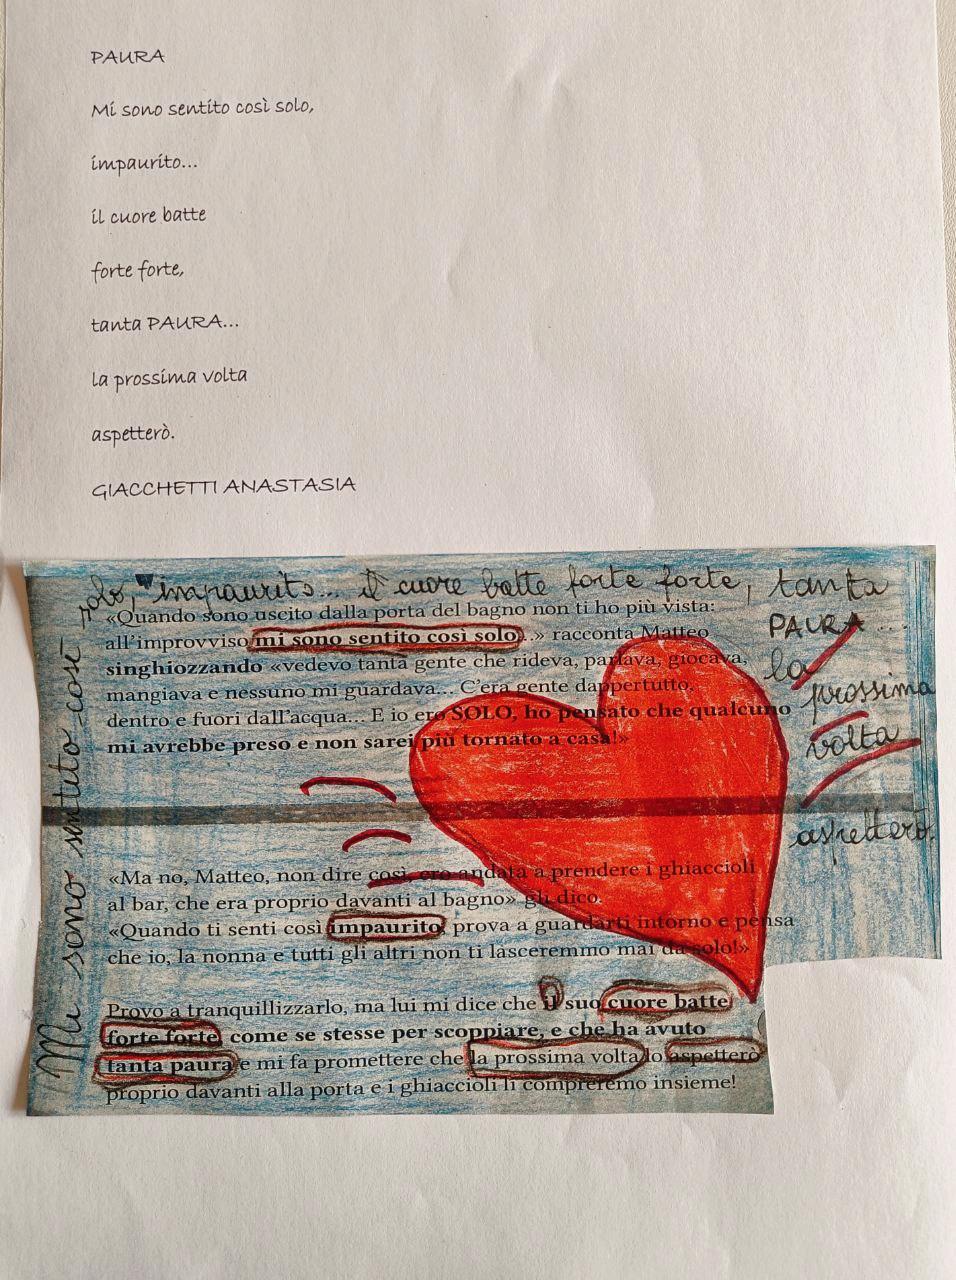 PAURA
Mi sono sentito così solo,
impaurito...
il cuore batte
forte forte,
tanta PAURA...
la prossima volta
aspetterò.
GIACCHETTI ANASTASIA
Mi sono sentito così
solo, impaurito... il cuore batte forte forte, tanta
PAURA...
la
prossima
volta
aspetterò.
«Quando sono uscito dalla porta del bagno non ti ho più vista:
all'improvviso mi sono sentito così solo...» racconta Matteo
singhiozzando «vedevo tanta gente che rideva, parlava, giocava,
mangiava e nessuno mi guardava... C'era gente dappertutto,
dentro e fuori dall'acqua... E io ero SOLO, ho pensato che qualcuno
mi avrebbe preso e non sarei più tornato a casa!»
«Ma no, Matteo, non dire così, ero andata a prendere i ghiaccioli
al bar, che era proprio davanti al bagno» gli dico.
«Quando ti senti così impaurito, prova a guardarti intorno e pensa
che io, la nonna e tutti gli altri non ti lasceremmo mai da solo!»
Provo a tranquillizzarlo, ma lui mi dice che il suo cuore batte
forte forte, come se stesse per scoppiare, e che ha avuto
tanta paura e mi fa promettere che la prossima volta lo aspetterò
proprio davanti alla porta e i ghiaccioli li compreremo insieme!